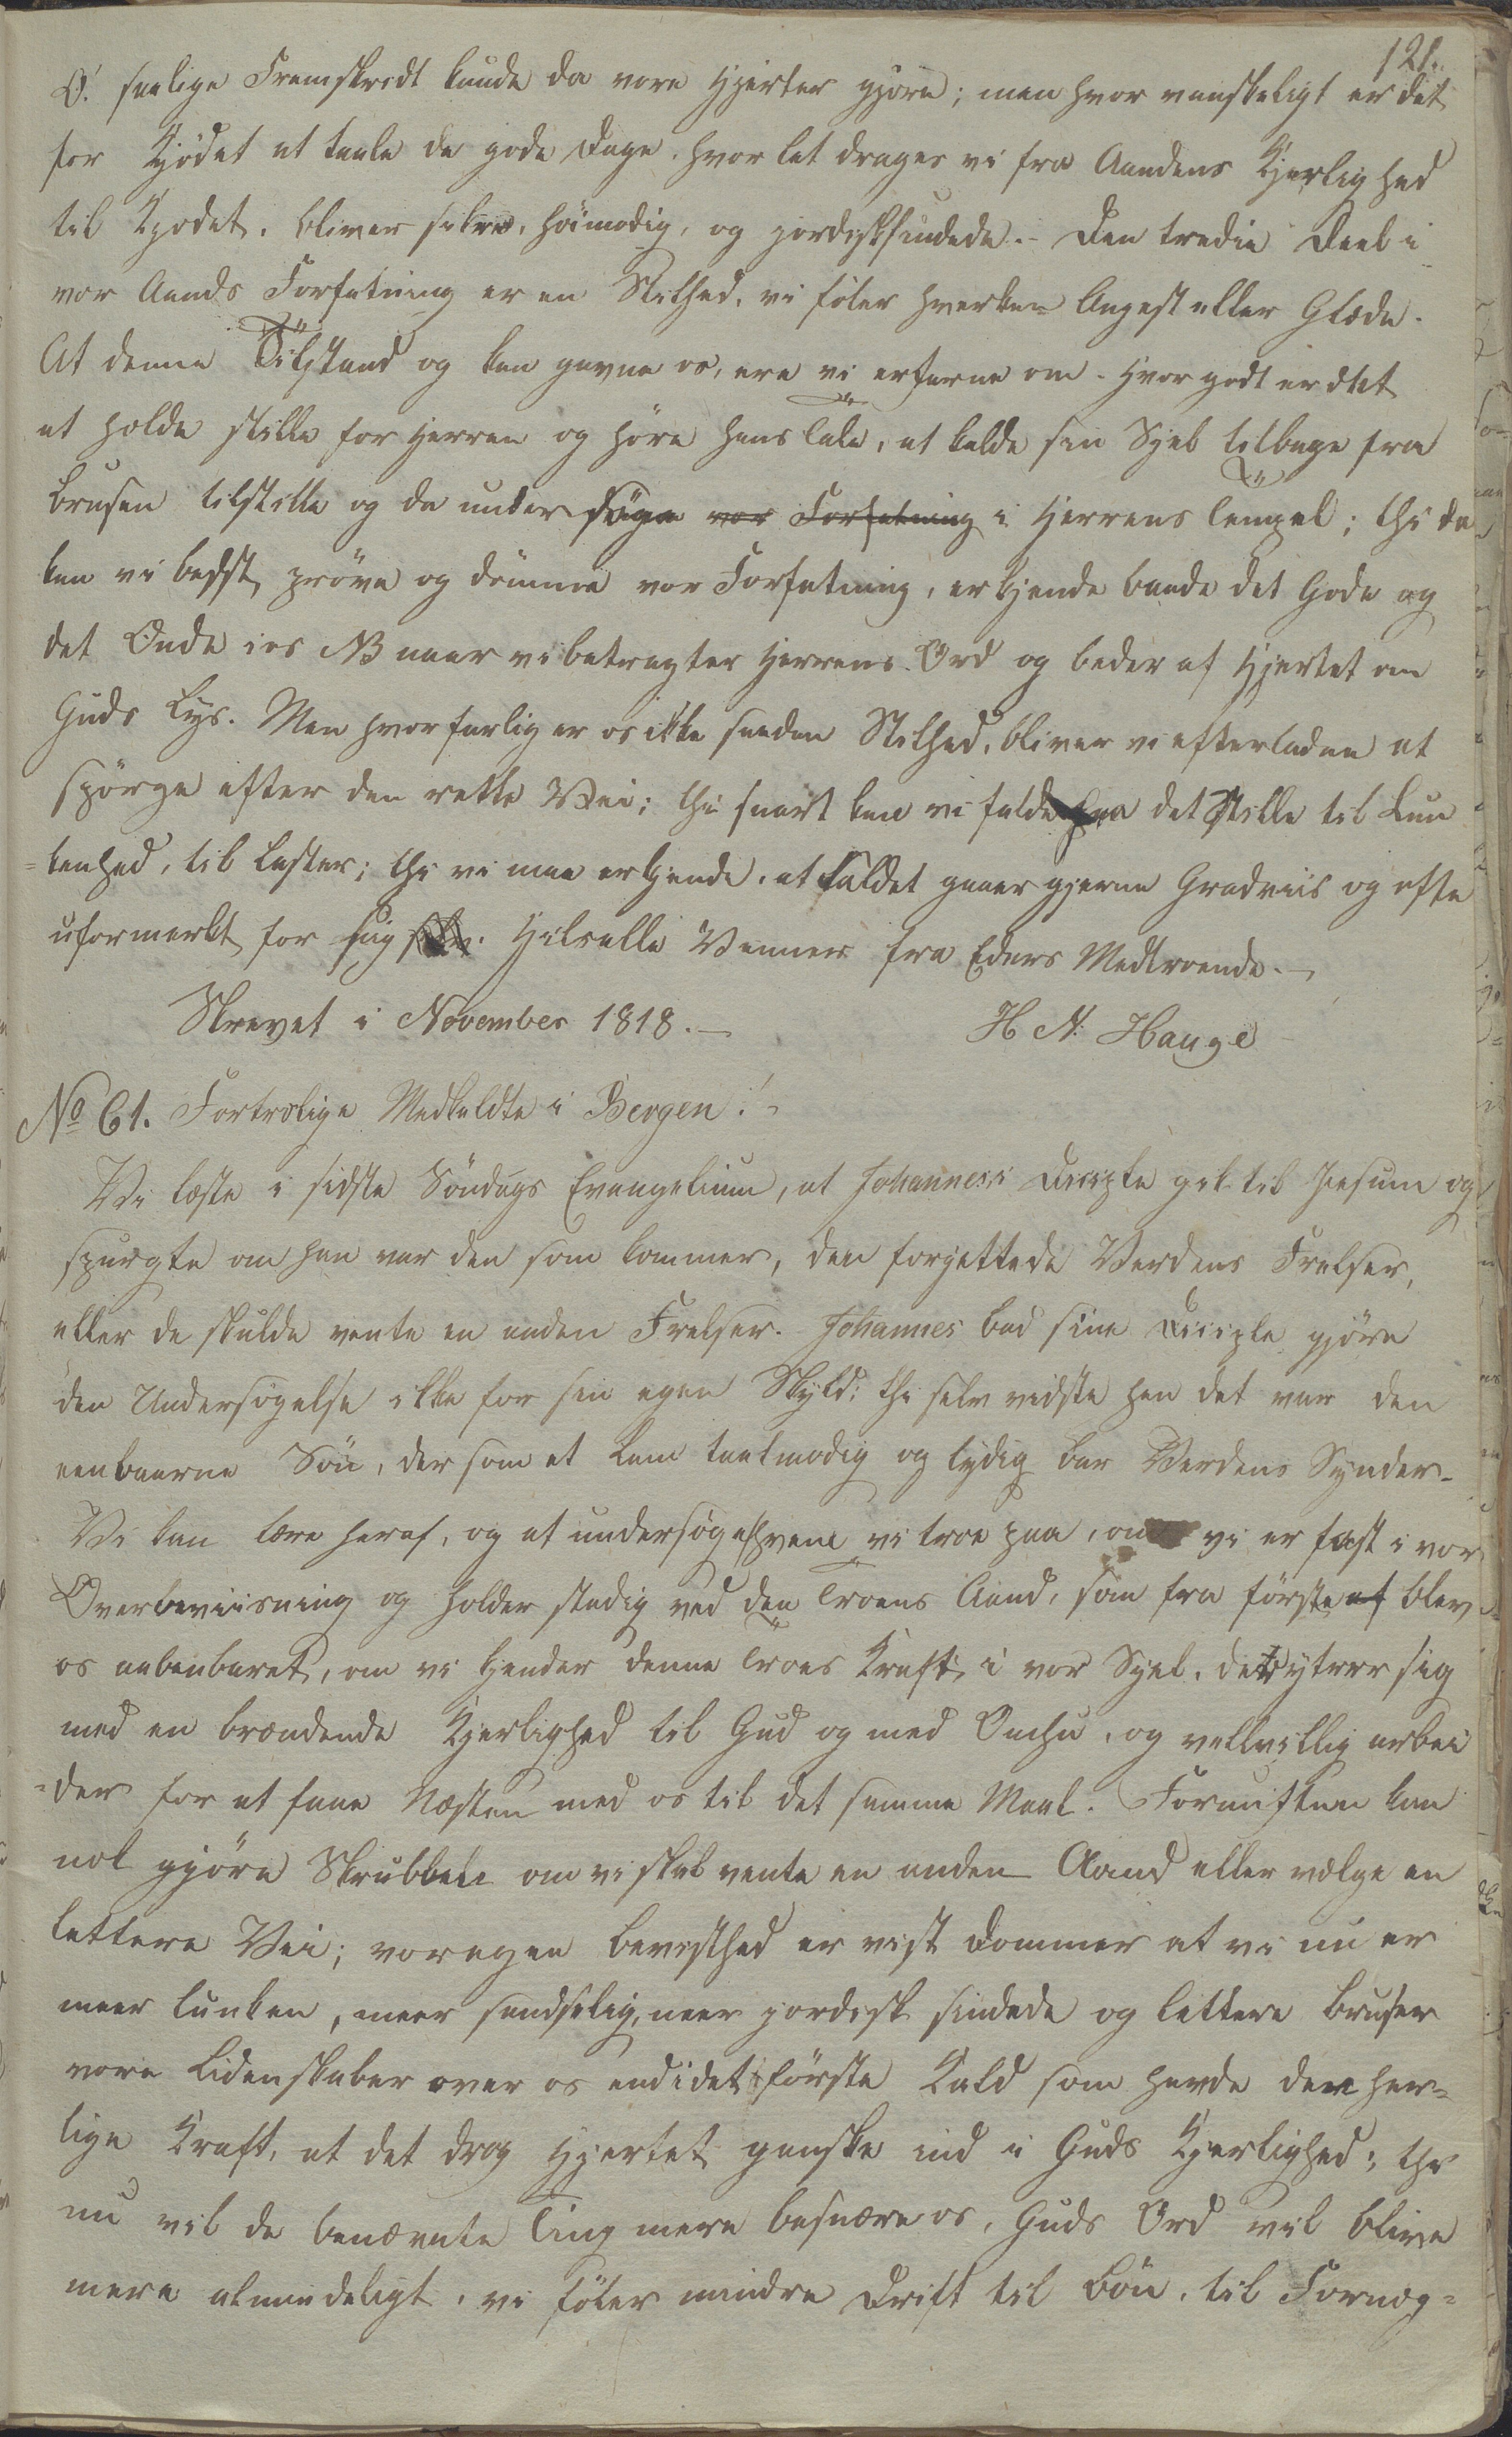 121.
O! saalige Fremskridt kunde da vore Hjerter gjöre; men hvor vanskeligt er det
for Kjödet at taale de gode Dage. hvor let drages vi fra Aandens Kjerlighed
til Kjödet. bliver sikre, höimodig, og jordisksindede. - Den tredie Deel i
vor Aands Forfatning er en Stilhed, vi föler hverken Angest eller Glæde.
At denne Tilstand og kan gavne os, ere vi erfarne om. Hvor godt er det
at holde stille for Herren og höre hans Tale, at kalde sin Sjel tilbage fra
Brusen tilstille og da undersöge vor Forfatning i Herrens Tempel; thi da
kan vi bedst pröve og dömme vor Forfatning, erkjende baade det Gode og
det Onde i os NB naar vi betragter Herrens Ord og beder af Hjertet om
Guds Lys. Men hvor farlig er os ikke saadan Stilhed, bliver vi efterladne at
spörge efter den rette Vei; thi snart kan vi falde fra det Stille til Lun
=kenhed, til Laster; thi vi maa erkjende, at Faldet gaaer gjerne Gradviis og ofte
uformerkt for sig. Hils alle Venner fra Eders Medtroende. -
Skrevet i November 1818. - H N: Hauge
No 61. Fortrolige Medkaldte i Bergen! -
Vi læste i sidste Söndags Evangelium, at Johannes's Diciple gik til Jesum og
spurgte om han var den som kommer, den forjettede Verdens Frelser,
eller de skulde vente en anden Frelser. Johannes bad sine Diciple gjöre
den Undersögelse ikke for sin egen Skyld; thi selv vidste han det var den
eenbaarne Sön, der som et Lam taalmodig og lydig bar Verdens Synder -
Vi kan lære heraf, og at undersöge hvem vi troe paa, om vi er fast i vor
Overbeviisning og holder stadig ved den Troens Aand, som fra förste af blev
os aabenbaret, om vi kjender denne Troes Kraft i vor Sjel. det ytrer sig
med en brændende Kjerlighed til Gud og med Omhu, og vellvillig arbei
=der for at faae Næsten med os til det samme Maal. Fornuften kan
nok gjöre Skrubbeli om vi skal vente en anden Aand eller vælge en
lettere Vei; vor egen Bevisthed er vist Dommer at vi nu er
meer lunken, meer sandselig, meer jordisk sindede og lettere bruser
vore Lidenskaber over os end i det förste Kald som havde den her=
lige Kraft, at det drog Hjertet ganske ind i Guds Kjerlighed; thi
nu vil de benævnte Ting mere besnære os, Guds Ord vil blive
mere almindeligt, vi föler mindre Drift til Bön, til Fornæg=